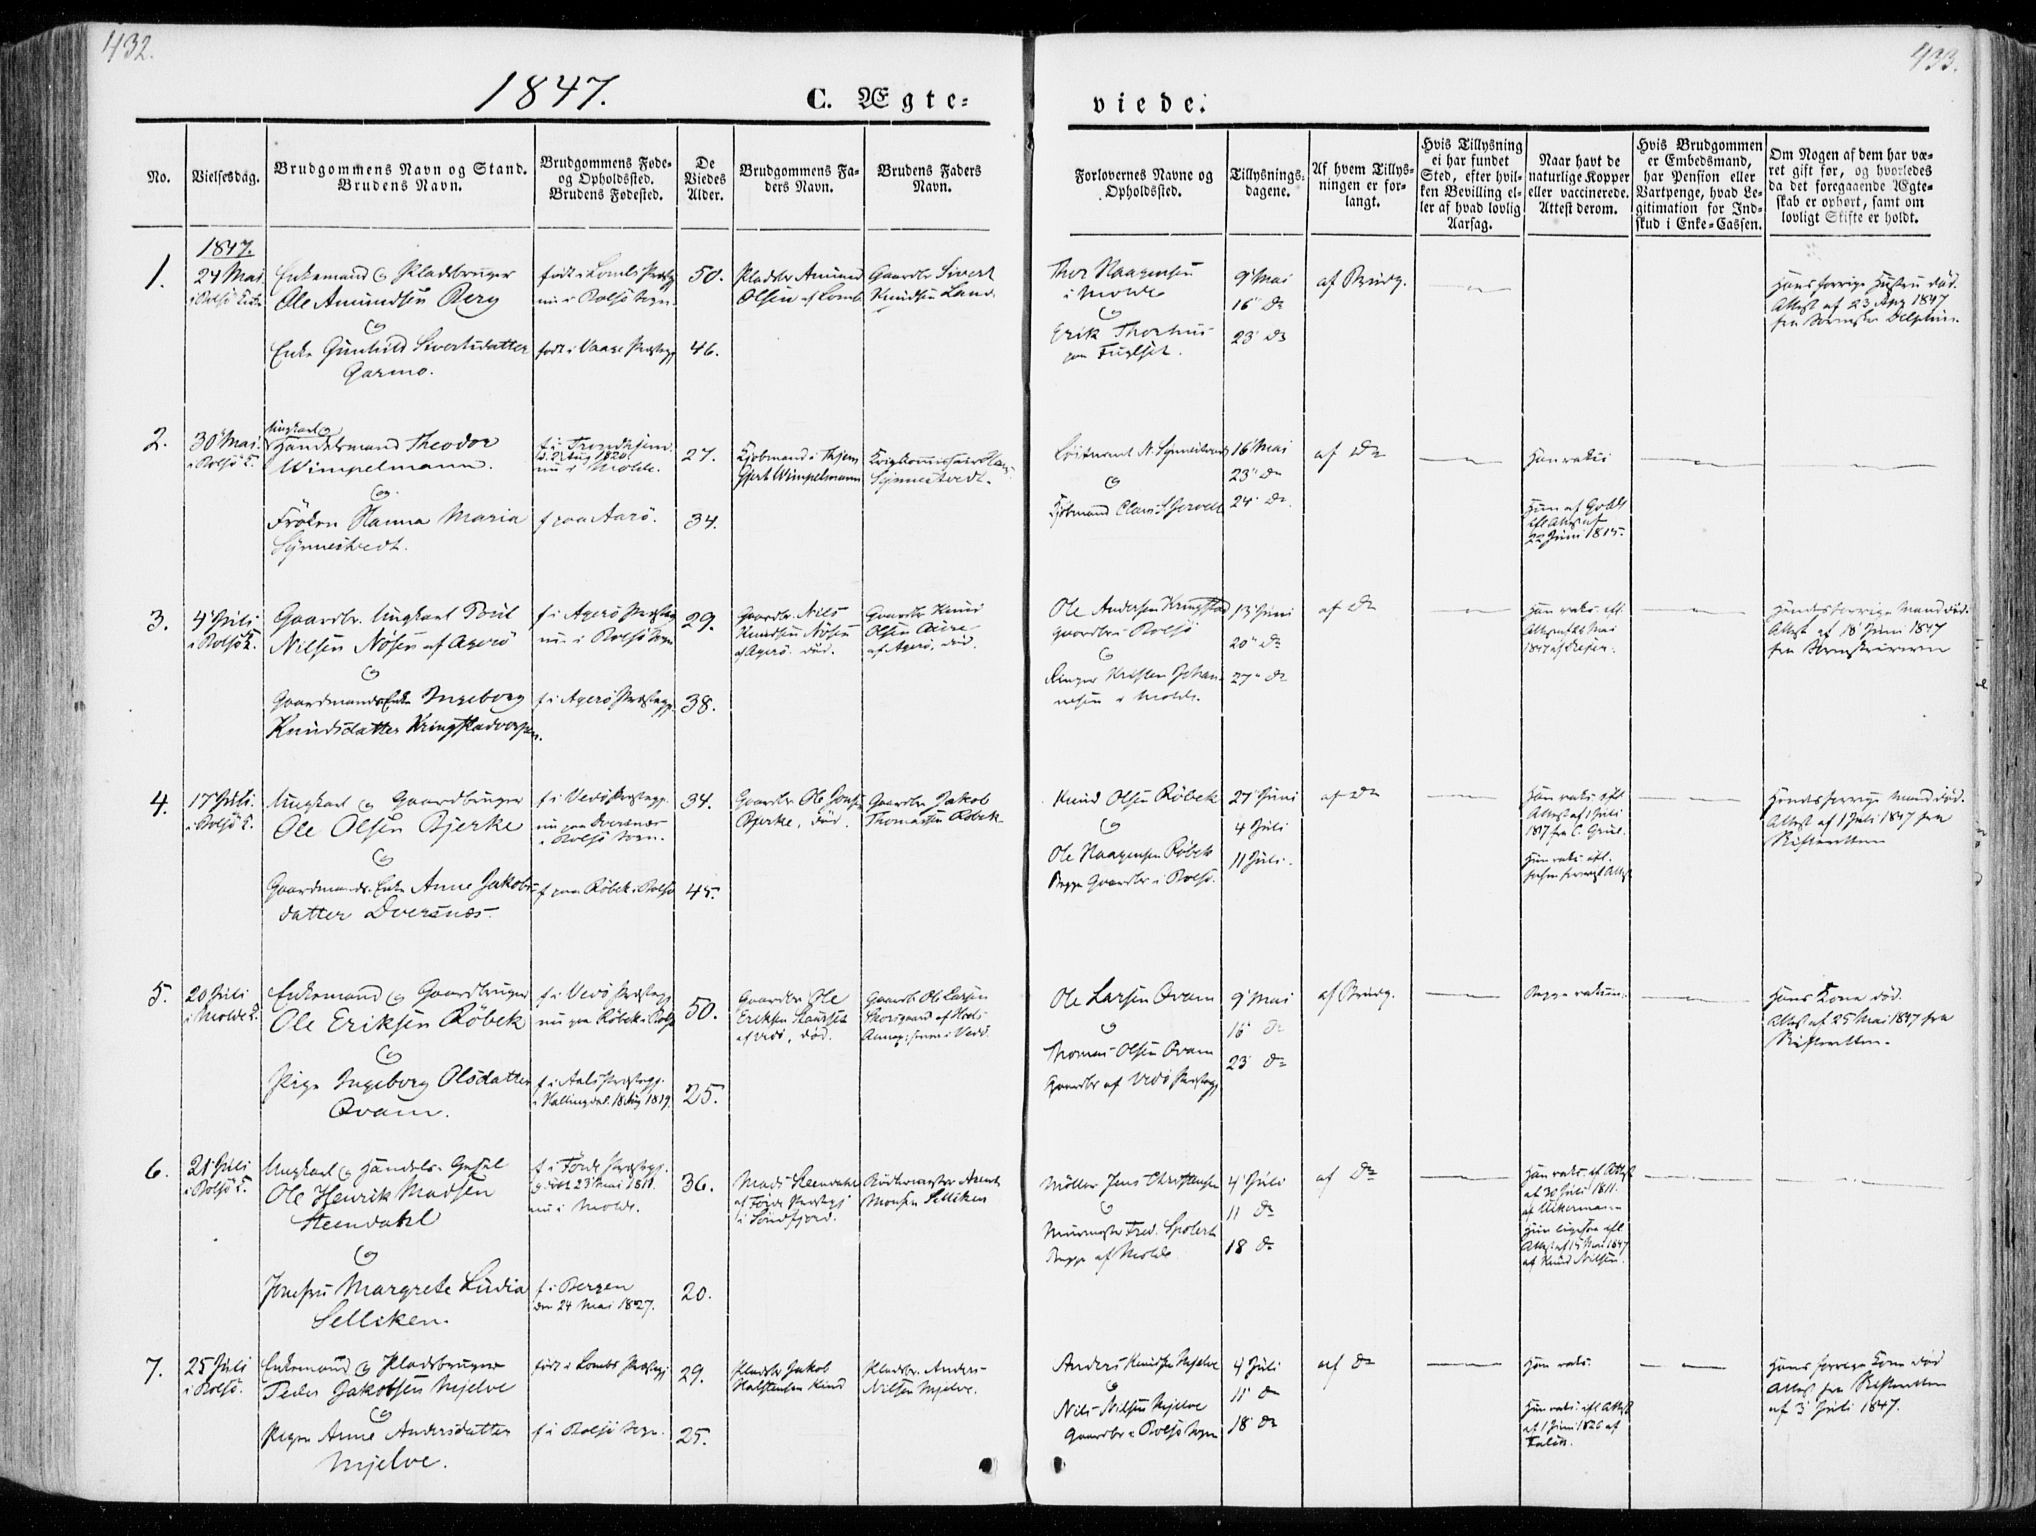 432.
433.
1847.
C. Ægte=
viede.
No.
Vielsesdag.
Brudgommens Navn og Stand.
Brudens Navn.
Brudgommens Føde=
og Opholdssted.
Brudens Fødested.
De
Viedes
Alder.
Brudgommens Fa=
ders Navn.
Brudens Faders
Navn.
Forlovernes Navne og
Opholdssted.
Tillysnings=
dagene.
Af hvem Tillys=
ningen er for=
langt.
Hvis Tillysning
ei har fundet
Sted, efter hvil=
ken Bevilling el=
ler af hvad lovlig
Aarsag.
Naar havt de
naturlige Kopper
eller vaccinerede.
Attest derom.
Hvis Brudgommen
er Embedsmand,
har Pension eller
Vartpenge, hvad Le=
gitimation for Ind=
skud i Enke=Cassen.
Om Nogen af dem har væ=
ret gift før, og hvorledes
da det foregaaende Ægte=
skab er ophørt, samt om
lovligt Skifte er holdt.
1847.
1.
24 Mai
i Bolsö
Enkemand og Pladsbruger
Ole Amundsen Berg
og
Enke Gunhild Sivertsdatter
Garmo.
født i Lomb Præstg
nu i Bolsö Sogn
født i Vaage Præstegj
50.
46.
Pladsbr Amund
Olsen af Lomb
Gaardbr Sivert
Knudsen
Thor Haagensen
i Molde
og
Erik Thorhus
paa Fuglset.
9 Mai
16 Do
23 Do
af Brudg.
Hans forrige Hustru død.
Attest af 23 Apr 1847
2.
30 Mai
i Bolsö K.
Ungkarl og
Handelsmand Theodor
Wimpelmann.
og
Frøken Hanna Maria
Synnestvedt.
f i Trondhjem
nu i Molde.
f paa Aarö.
27.
34.
Kjøbmand i Thjem
Gjert Wimpelmann
Synnestvedt.
Löitnant N. Synnestvedt
og
Kjøbmand
16 Mai
23 Do
24 Do
af Do
Han vakci
Hun af
Attest af
22 Juni 1815
3.
4 Juli
i Bolsö K.
Gaardbr. Ungkarl Poul
Nilsen Nösen af Agerö
og
Gaardmandsenke Ingeborg
Knudsdatter Kringstadvorpen.
f i Agerö Præsteg
nu i Bolsö Sogn
f i Agerö Præstegj.
29.
38.
Gaardbr. Nils
Knudsen Nösen
af Agerö. død.
Gaardbr Knud
Olsen
af Agerö, død.
Ole Andersen Kringstad
Gaardbr i Bolsö
og
Kristen Johan-
nesen i Molde.
13 Juni
20 Do
27 Do
af Do
Han vaks. efl.
Attest af Mai
1847
Hendes forrige Mand død.
Attest af 18 Juni 1847
4.
17 Juli.
i Bolsö K.
Ungkarl og Gaardbruger
Ole Olsen Bjerke
og
Gaardmands Enke Anne Jakobs-
datter Dversnæs.
f i Vedö Præstegj.
nu paa Dversnæs
i Bolsö Sogn.
f paa Röbek i Bolsö
34.
45.
Gaardbr Ole
Bjerke, død.
Gaardbr Jakob
Thomassen Röbek
Knud Olsen Röbek
og
Ole Haagensen Röbek
Begge Gaardbr i Bolsö.
27 Juni
4 Juli
11 Juli.
af Do
Han vaks efl
Attest af 1 Juli
1817 fra
Hun vaks. efl.
Attest
Hendes forrige Mand død.
Attest af 1 Juli 1847 fra
Skifteretten
5.
20 Juli
i Molde K.
Enkemand og Gaardbruger
Ole Eriksen Röbek
og
Pige Ingeborg Olsdatter
Qvam.
f i Vedö Præstegj
nu paa Röbek i Bolsö
f i Aals Præstegj.
i Hallingdal 18 Aug 1819.
50.
25.
Gaardbr Ole
Eriksen
af Vedö, død.
Gaardb. Ole Larsen
Skorgaard af
i Vedö.
Ole Larsen Qvam
og
Thomas Olsen Qvam
Gaardbr af Vedö Præstegj
9 Mai
16 Do
23 Do
af Brudg.
Begge vakcin.
Hans Kone død.
Attest af 25 Mai 1847 fra
Skifteretten.
6.
21 Juli
i Bolsö K.
Ungkarl og Handels-Gesel
Ole Henrik Madsen
Steendahl
og
Jomfru Margrete Lüdia
Selliken.
f i Förde Præstegj.
23 Mai 1811.
nu i Molde.
f i Bergen
den 24 Mai 1827.
36.
20.
Mads Steendahl
af Förde Præstegj
i Söndfjord.
Monsen Selliken
Möller Jens Christensen
og
Muurmester Fred. Spolert
Begge af Molde.
4 Juli
11 Do
18 Do
af Do
Han vaks. efl Attest
af 30 Juli 1811.
af Ackermann
Hun ligesaa efl
Attest af 15 Mai 1847
af Knud Nilsen.
7.
25 Juli
i Bolsö.
Enkemand og Pladsbruger
Peder Jakobsen Mjelve
og
Pigen Anne Andersdatter
Mjelve.
født i Lombs Præstegj
f i Bolsö Sogn.
29.
25.
Pladsbr Jakob
Halstensen
Pladsbr. Anders
Nilsen Mjelve.
Anders Knudsen Mjelve
og
Nils Nilsen Mjelve
Gaardbr i Bolsö Sogn
4 Juli
11 Do
18 Do
af Do
Han vaks.
Hun vaks. efl Attest
af 1 Juni 1826 af
Hans forrige Kone død
Attest fra Skifteretten
af 3 Juli 1847.